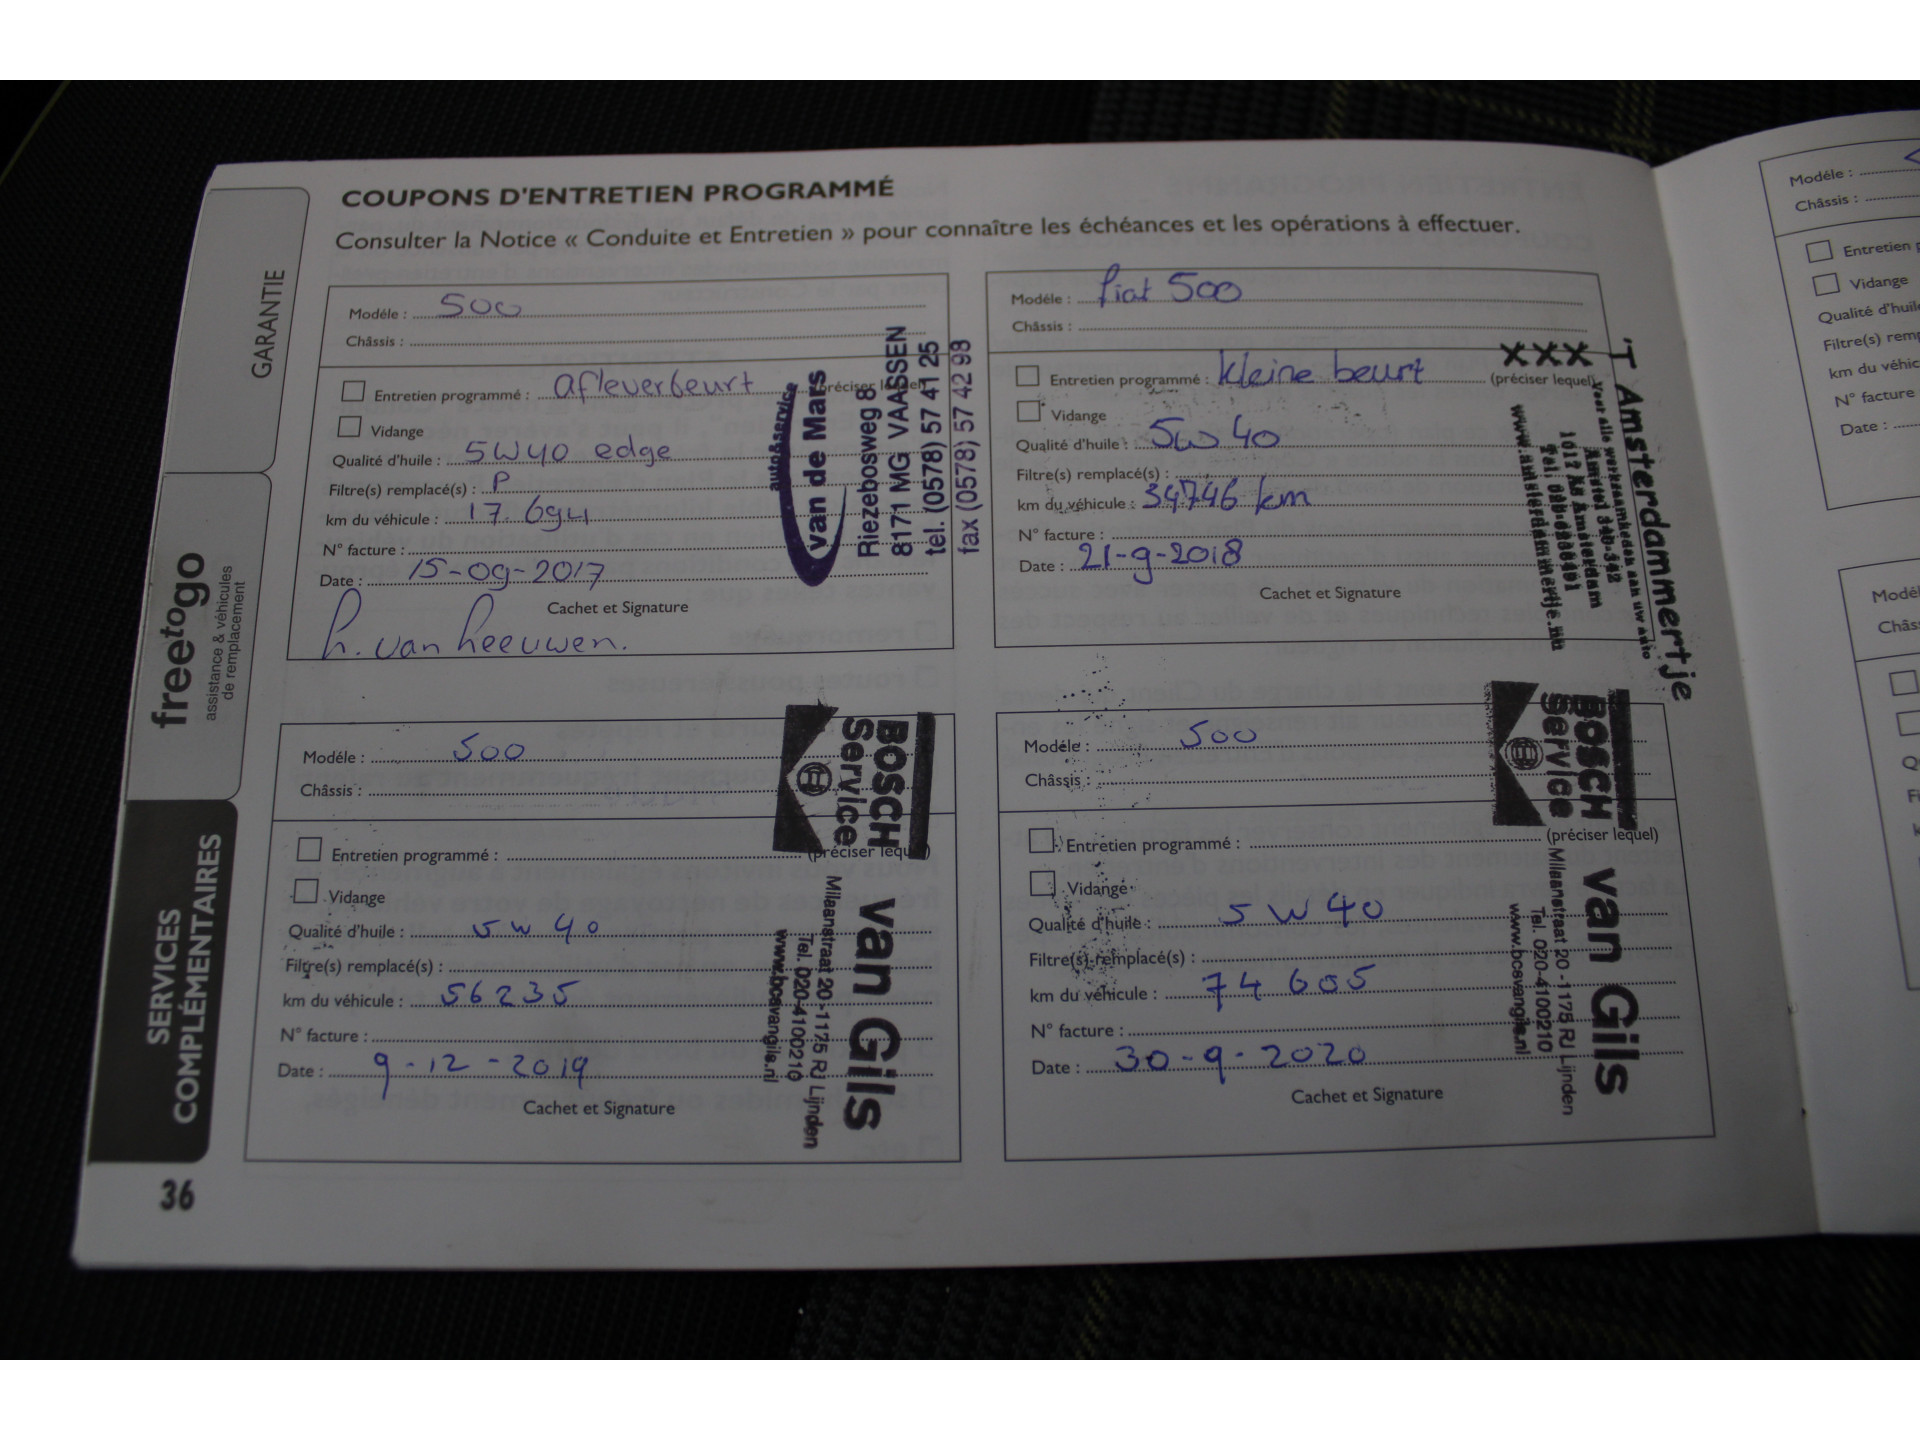 COUPONS D'ENTRETIEN PROGRAMMÉ
Consulter la Notice « Conduite et Entretien » pour connaître les échéances et les opérations à effectuer.
GARANTIE
freetogo
assistance & véhicules
de remplacement
SERVICES
COMPLÉMENTAIRES
36
Modéle : 500
Châssis :
Entretien programmé : afleverbeurt (préciser lequel)
Vidange
Qualité d'huile : 5W40 edge
Filtre(s) remplacé(s) : P
km du véhicule : 17.694
N° facture :
Date : 15-09-2017
Cachet et Signature
h. van Leeuwen.
auto&service
van de Mars
Riezebosweg 8
8171 MG VAASSEN
tel. (0578) 57 41 25
fax (0578) 57 42 98
Modéle : fiat 500
Châssis :
Entretien programmé : kleine beurt (préciser lequel)
Vidange
Qualité d'huile : 5W40
Filtre(s) remplacé(s) :
km du véhicule : 34746 km
N° facture :
Date : 21-9-2018
Cachet et Signature
XXX
'T Amsterdammertje
Voor alle werkzaamheden aan uw auto
Amstel 340-342
1017 AS Amsterdam
www.amsterdammertje.nu
Modéle : 500
Châssis :
Entretien programmé : (préciser lequel)
Vidange
Qualité d'huile : 5W40
Filtre(s) remplacé(s) :
km du véhicule : 56235
N° facture :
Date : 9-12-2019
Cachet et Signature
BOSCH
Service
van Gils
Milaanstraat 20 - 1175 RJ Lijnden
Tel. 020-4100210
www.bcsvangils.nl
Modéle : 500
Châssis :
Entretien programmé : (préciser lequel)
Vidange
Qualité d'huile : 5W40
Filtre(s) remplacé(s) :
km du véhicule : 74605
N° facture :
Date : 30-9-2020
Cachet et Signature
BOSCH
Service
van Gils
Milaanstraat 20 - 1175 RJ Lijnden
Tel. 020-4100210
www.bcsvangils.nl
Modéle :
Châssis :
Entretien
Vidange
Qualité d'huile
Filtre(s)
km du
N° facture
Date :